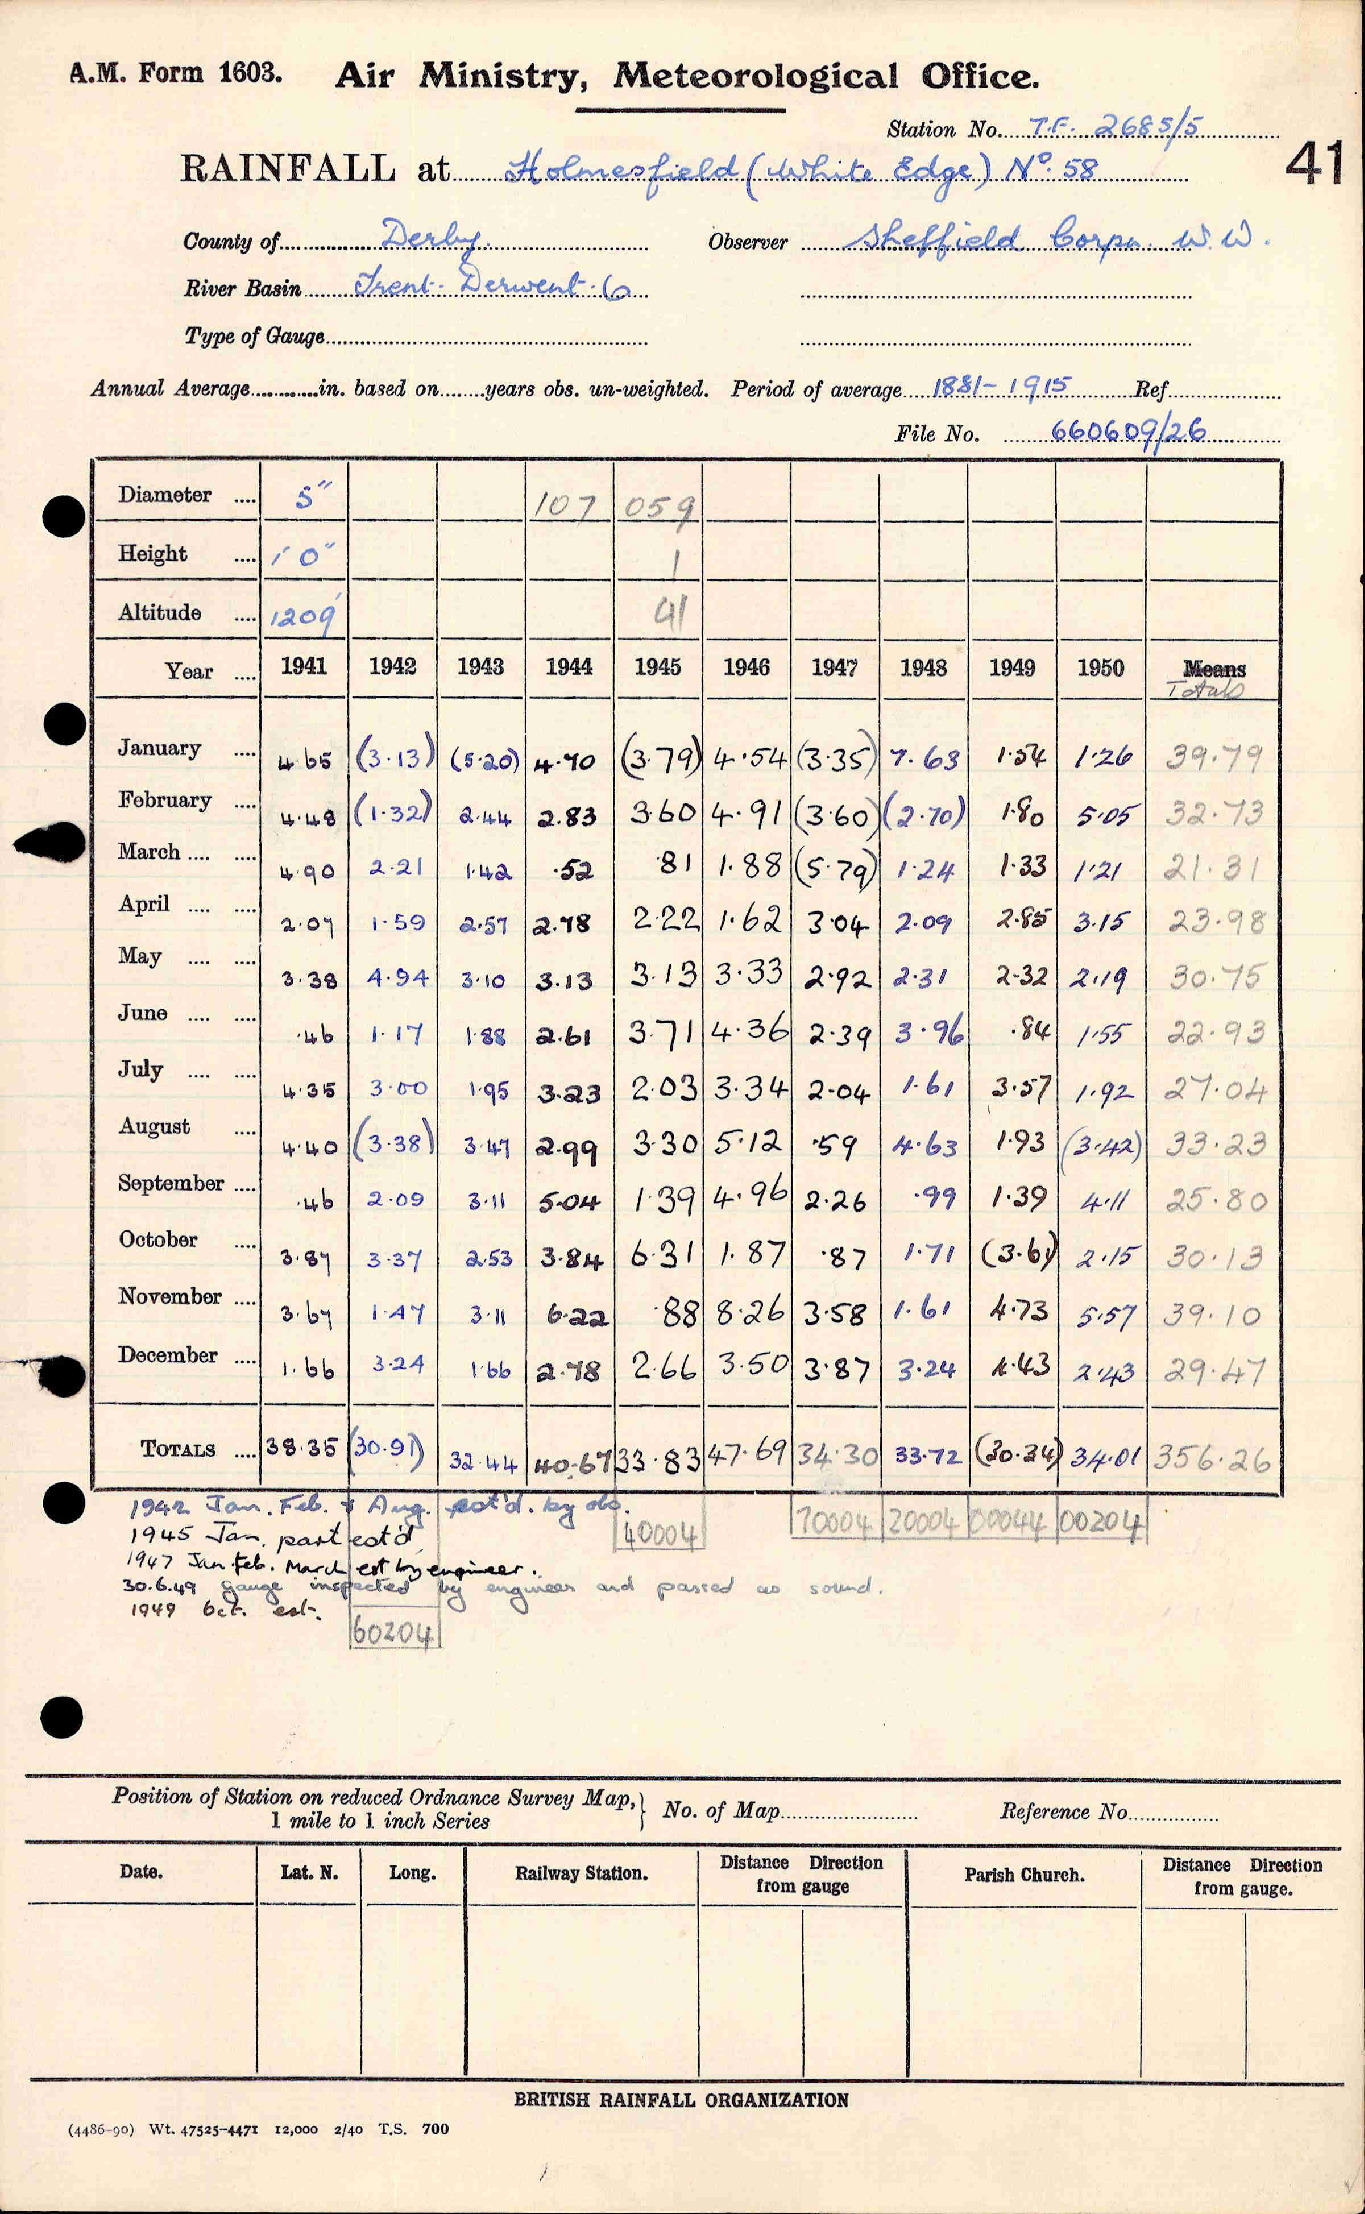 A.M. Form 1603. Air Ministry, Meteorological Office.
Station No. T.F. 2685/5
41
RAINFALL at Holmesfield (White Edge) No. 58
County of Derby. Observer Sheffield Corpn. W.W.
River Basin Trent. Derwent. 6
Type of Gauge
Annual Average in. based on years obs. un-weighted. Period of average 1881-1915 Ref
File No. 660609/26
Diameter .... 5" 107 059
Height .... 1'0" 1
Altitude .... 1209' 41
Year .... 1941 1942 1943 1944 1945 1946 1947 1948 1949 1950 Means
Totals
January .... 4.65 (3.13) (5.20) 4.70 (3.79) 4.54 (3.35) 7.63 1.54 1.26 39.79
February .... 4.48 (1.32) 2.44 2.83 3.60 4.91 (3.60) (2.70) 1.80 5.05 32.73
March .... .... 4.90 2.21 1.42 .52 .81 1.88 (5.79) 1.24 1.33 1.21 21.31
April .... .... 2.07 1.59 2.57 2.78 2.22 1.62 3.04 2.09 2.85 3.15 23.98
May .... .... 3.38 4.94 3.10 3.13 3.13 3.33 2.92 2.31 2.32 2.19 30.75
June .... .... .46 1.17 1.88 2.61 3.71 4.36 2.39 3.96 .84 1.55 22.93
July .... .... 4.35 3.00 1.95 3.23 2.03 3.34 2.04 1.61 3.57 1.92 27.04
August .... 4.40 (3.38) 3.47 2.99 3.30 5.12 .59 4.63 1.93 (3.42) 33.23
September .... .46 2.09 3.11 5.04 1.39 4.96 2.26 .99 1.39 4.11 25.80
October .... 3.87 3.37 2.53 3.84 6.31 1.87 .87 1.71 (3.61) 2.15 30.13
November .... 3.67 1.47 3.11 6.22 .88 8.26 3.58 1.61 4.73 5.57 39.10
December .... 1.66 3.24 1.66 2.78 2.66 3.50 3.87 3.24 4.43 2.43 29.47
TOTALS .... 38.35 (30.91) 32.44 40.67 33.83 47.69 34.30 33.72 (30.34) 34.01 356.26
1942 Jan. Feb. & Aug. est'd. by obs.
40004 70004 20004 00044 00204
1945 Jan. part est'd
1947 Jan. Feb. March est by engineer.
30.6.49 gauge inspected by engineer and passed as sound.
1949 Oct. est.
60204
Position of Station on reduced Ordnance Survey Map, } No. of Map Reference No.
1 mile to 1 inch Series
Date. Lat. N. Long. Railway Station. Distance Direction from gauge Parish Church. Distance Direction from gauge.
BRITISH RAINFALL ORGANIZATION
(4486-90) Wt. 47525-4471 12,000 2/40 T.S. 700